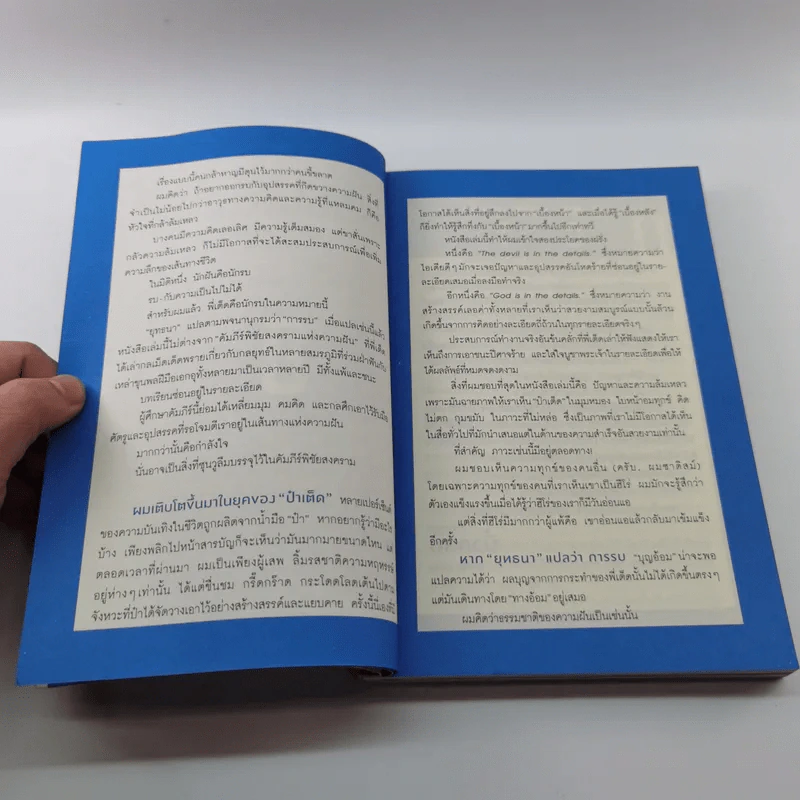 เรื่องแบบนี้คนกล้าหาญมีตุนไว้มากกว่าคนขี้ขลาด
ผมคิดว่า ถ้าอยากออกรบกับอุปสรรคที่กีดขวางความฝัน สิ่งที่
จำเป็นไม่น้อยไปกว่าอาวุธทางความคิดและความรู้ที่แหลมคม ก็คือ
หัวใจที่กล้าล้มเหลว
บางคนมีความคิดเลอเลิศ มีความรู้เต็มสมอง แต่ขาสั่นเพราะ
กลัวความล้มเหลว ก็ไม่มีโอกาสที่จะได้สะสมประสบการณ์เพื่อเพิ่ม
ความลึกของเส้นทางชีวิต
ในมิติหนึ่ง นักฝันคือนักรบ
รบ-กับความเป็นไปไม่ได้
สำหรับผมแล้ว พี่เต็ดคือนักรบในความหมายนี้
"ยุทธนา" แปลตามพจนานุกรมว่า "การรบ" เมื่อแปลเช่นนี้แล้ว
หนังสือเล่มนี้ไม่ต่างจาก "คัมภีร์พิชัยสงครามแห่งความฝัน" ที่พี่เต็ด
ได้เล่ากลเม็ดเด็ดพรายเกี่ยวกับกลยุทธ์ในหลายสมรภูมิที่ร่วมฝ่าฟันกับ
เหล่าขุนพลฝีมือเอกอุทั้งหลายมาเป็นเวลาหลายปี มีทั้งแพ้และชนะ
บทเรียนซ่อนอยู่ในรายละเอียด
ผู้ศึกษาคัมภีร์นี้ย่อมได้เหลี่ยมมุม คมคิด และกลศึกเอาไว้รับมือ
ศัตรูและอุปสรรคที่รอโจมตีเราอยู่ในเส้นทางแห่งความฝัน
มากกว่านั้นคือกำลังใจ
นั่นอาจเป็นสิ่งที่ซุนวูลืมบรรจุไว้ในคัมภีร์พิชัยสงคราม
ผมเติบโตขึ้นมาในยุคของ "ป๋าเต็ด" หลายเปอร์เซ็นต์
ของความบันเทิงในชีวิตถูกผลิตจากน้ำมือ "ป๋า" หากอยากรู้ว่ามีอะไร
บ้าง เพียงพลิกไปหน้าสารบัญก็จะเห็นว่ามันมากมายขนาดไหน
ตลอดเวลาที่ผ่านมา ผมเป็นเพียงผู้เสพ ลิ้มรสชาติความหฤหรรษ์
อยู่ห่างๆ เท่านั้น ได้แต่ชื่นชม กรี๊ดกร๊าด กระโดดโลดเต้นไปตาม
จังหวะที่ป๋าได้จัดวางเอาไว้อย่างสร้างสรรค์และแยบคาย ครั้งนี้
โอกาสได้เห็นสิ่งที่อยู่ลึกลงไปจาก "เบื้องหน้า" และเมื่อได้รู้ "เบื้องหลัง"
ก็ยิ่งทำให้รู้สึกทึ่งกับ "เบื้องหน้า" มากขึ้นไปอีกเท่าทวี
หนังสือเล่มนี้ทำให้ผมเข้าใจสองประโยคของฝรั่ง
หนึ่งคือ "The devil is in the details." ซึ่งหมายความว่า
ไอเดียดีๆ มักจะเจอปัญหาและอุปสรรคอันโหดร้ายที่ซ่อนอยู่ในราย-
ละเอียดเสมอเมื่อลงมือทำจริง
อีกหนึ่งคือ "God is in the details." ซึ่งหมายความว่า งาน
สร้างสรรค์เลอค่าทั้งหลายที่เราเห็นว่าสวยงามสมบูรณ์แบบนั้นล้วน
เกิดขึ้นจากการคิดอย่างละเอียดถี่ถ้วนในทุกรายละเอียดจริงๆ
ประสบการณ์ทำงานจริงอันข้นคลั่กที่พี่เต็ดเล่าให้ฟังแสดงให้เรา
เห็นถึงการเอาชนะปีศาจร้าย และใส่ใจบูชาพระเจ้าในรายละเอียดเพื่อให้
ได้ผลลัพธ์ที่หมดจดงดงาม
สิ่งที่ผมชอบที่สุดในหนังสือเล่มนี้คือ ปัญหาและความล้มเหลว
เพราะมันฉายภาพให้เราเห็น "ป๋าเต็ด" ในมุมหมอง ใบหน้าอมทุกข์ คิด
ไม่ตก กุมขมับ ในภาวะที่ไม่หล่อ ซึ่งเป็นภาพที่เราไม่มีโอกาสได้เห็น
ในสื่อทั่วไปที่มักนำเสนอแต่ในด้านของความสำเร็จอันสวยงามเท่านั้น
ที่สำคัญ ภาวะเช่นนี้มีอยู่ตลอดทาง!
ผมชอบเห็นความทุกข์ของคนอื่น (ครับ, ผมซาดิสม์)
โดยเฉพาะความทุกข์ของคนที่เราเห็นเขาเป็นฮีโร่ ผมมักจะรู้สึกว่า
ตัวเองแข็งแรงขึ้นเมื่อได้รู้ว่าฮีโร่ของเราก็มีวันอ่อนแอ
แต่สิ่งที่ฮีโร่มีมากกว่าผู้แพ้คือ เขาอ่อนแอแล้วกลับมาเข้มแข็ง
อีกครั้ง
หาก "ยุทธนา" แปลว่า การรบ "บุญอ้อม" น่าจะพอ
แปลความได้ว่า ผลบุญจากการกระทำของพี่เต็ดนั้นไม่ได้เกิดขึ้นตรงๆ
แต่มันเดินทางโดย "ทางอ้อม" อยู่เสมอ
ผมคิดว่าธรรมชาติของความฝันเป็นเช่นนั้น